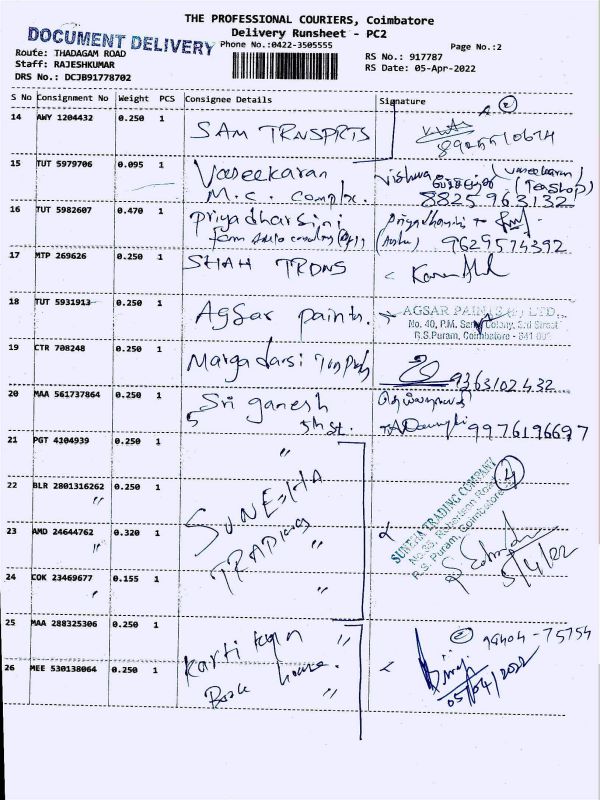 THE PROFESSIONAL COURIERS, Coimbatore
DOCUMENT DELIVERY
Delivery Runsheet - PC2
Phone No.:0422-3505555
Page No.:2
Route: THADAGAM ROAD
Staff: RAJESHKUMAR
DRS No.: DCJB91778702
RS No.: 917787
RS Date: 05-Apr-2022
S No Consignment No Weight PCS Consignee Details Signature
14 AWY 1204432 0.250 1 SAM TRNSPRTS
2
15 TUT 5979706 0.095 1 Vaseekaran
M.C. Complx.
Vishwa Vaseekaran
(Tea Shop)
8825963132
16 TUT 5982607 0.470 1 Priyadharsini
Priyadharshini
9629574392
17 MTP 269626 0.250 1 SHAH TRDNS
18 TUT 5931913 0.250 1 Agsar paints.
AGSAR PAINTS (P) LTD.,
No. 40, P.M. Samy Colony, 3rd Street
R.S.Puram, Coimbatore - 641 002
19 CTR 708248 0.250 1 Margadarsi
9363102432
20 MAA 561737864 0.250 1 Sri ganesh
5th St.
9976196697
21 PGT 4104939 0.250 1 "
22 BLR 2801316262 0.250 1 SUNESHA
"
23 AMD 24644762 0.320 1 TRADING "
"
24 COK 23469677 0.155 1 "
"
4
SUNEHA TRADING COMPANY
No.35, Robertson Road
R.S. Puram, Coimbatore
5/4/22
25 MAA 288325306 0.250 1 Kartikeyn "
2 99404-75754
26 MEE 530138064 0.250 1 Book house. "
05/04/2022